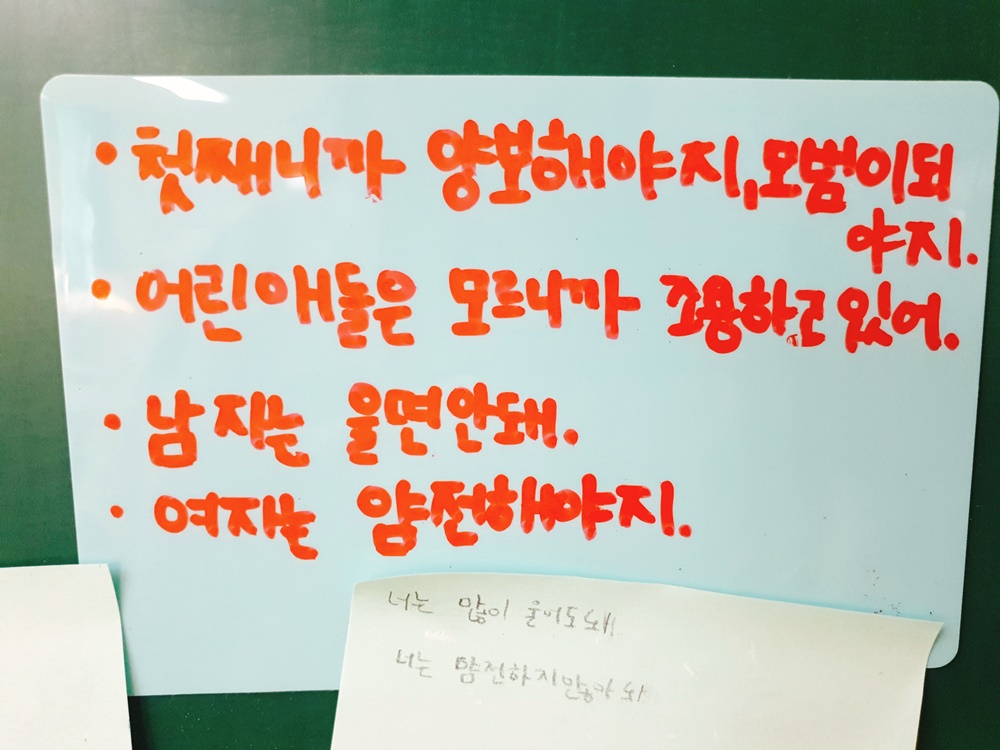 • 첫째니까 양보해야지, 모범이되
야지.
• 어린애들은 모르니까 조용하고 있어.
• 남자는 울면안돼.
• 여자는 얌전해야지.
너는 많이 울어도돼
너는 얌전하지않아도 돼